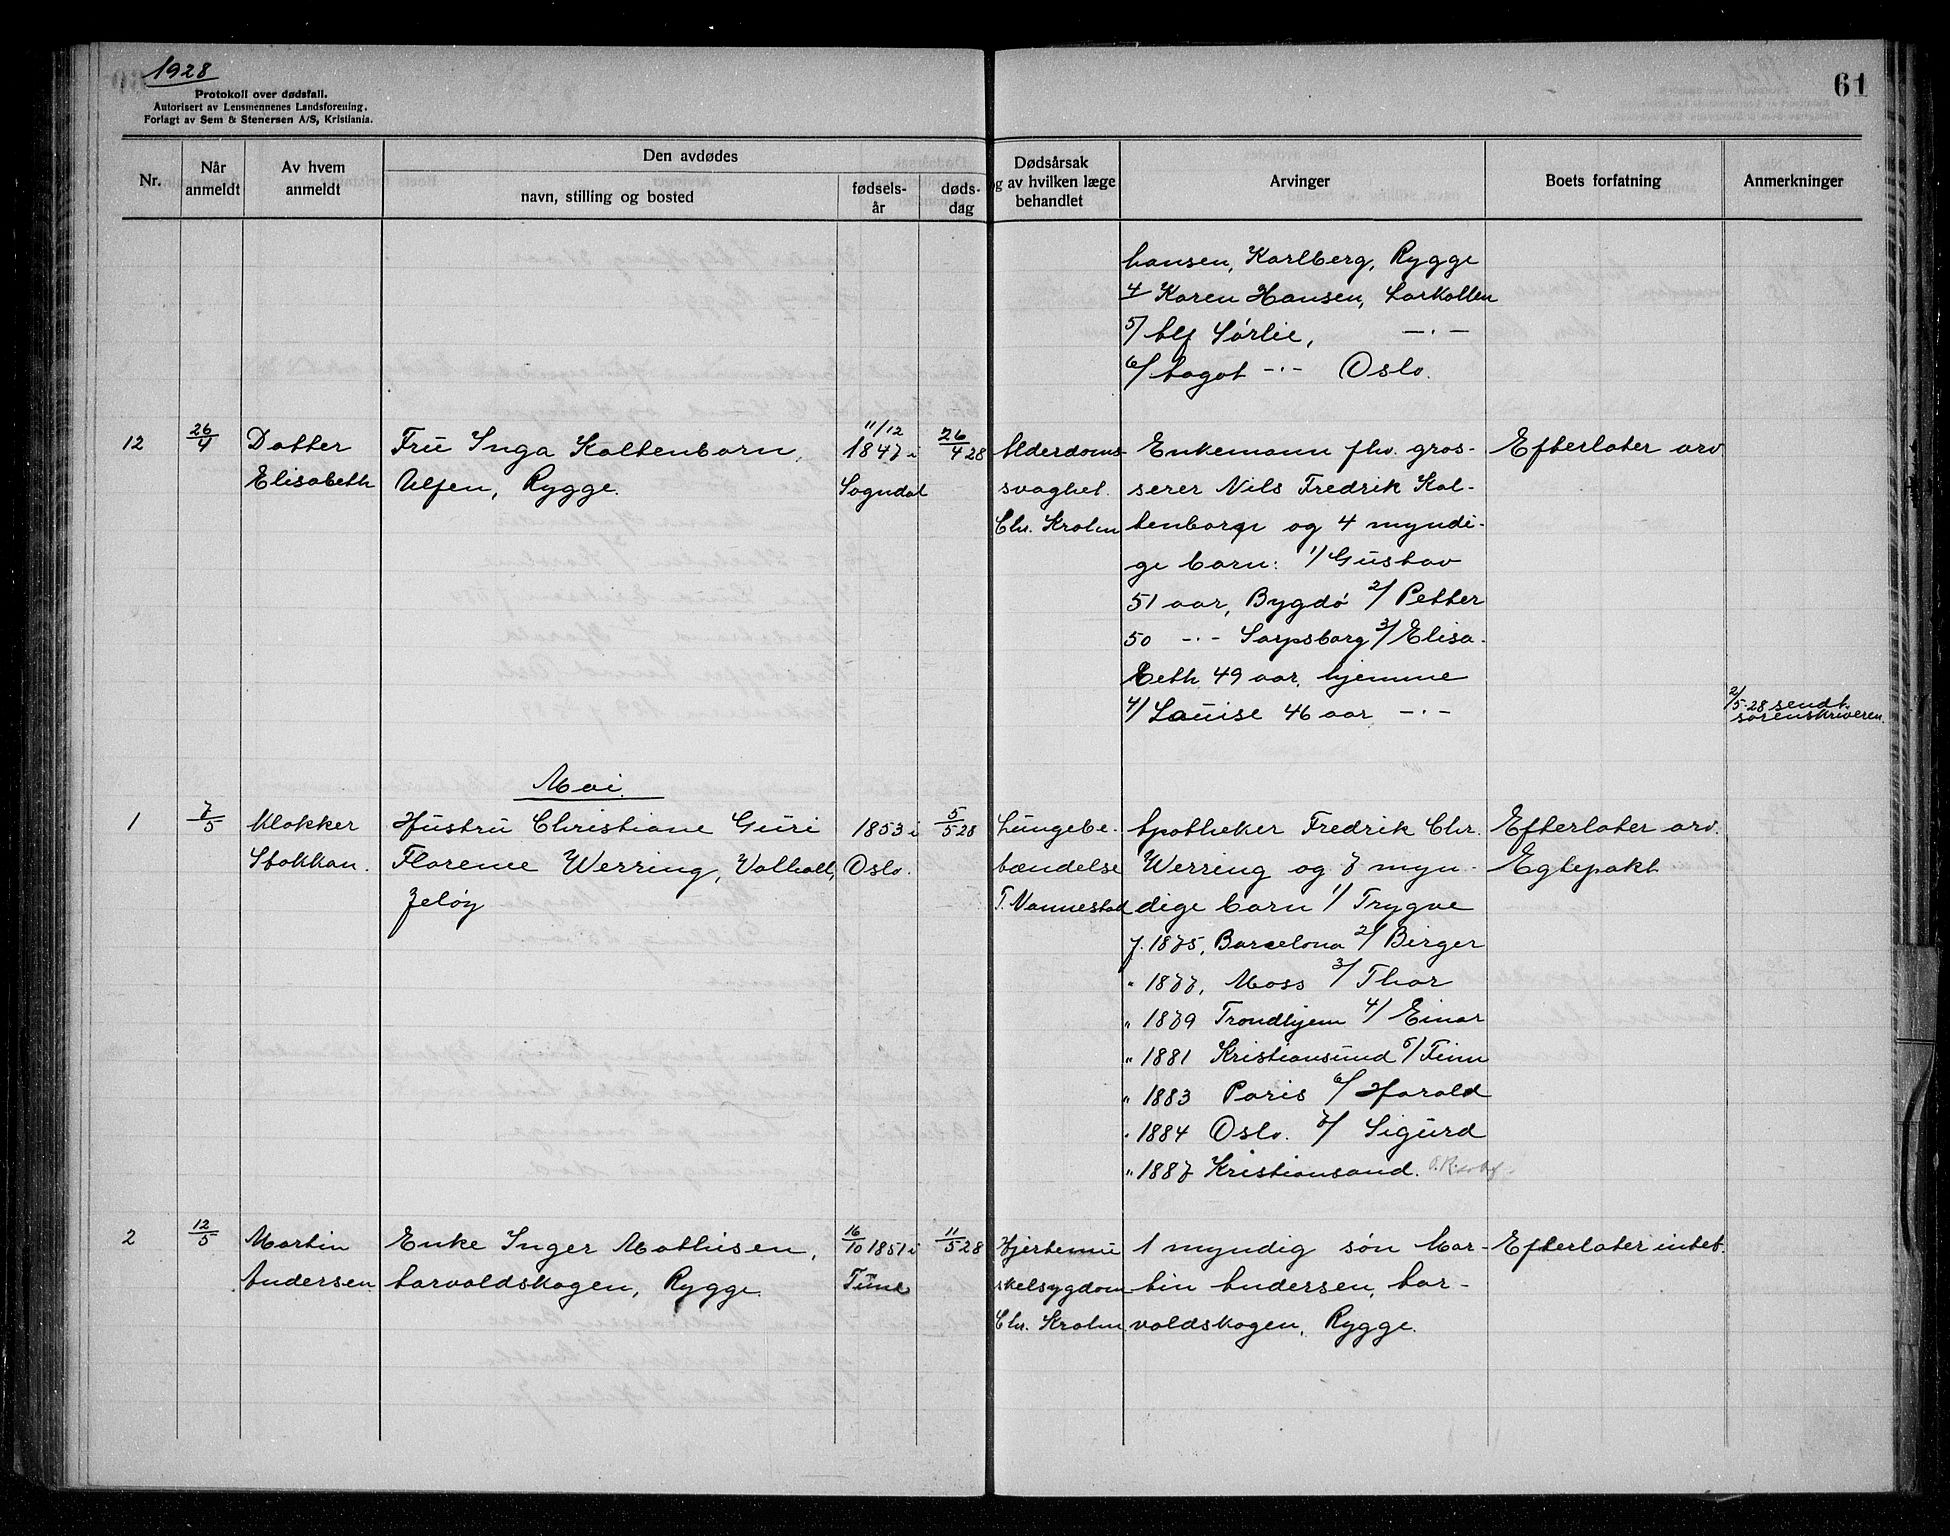 1928
Protokoll over dødsfall.
Autorisert av Lensmennenes Landsforening.
Forlagt av Sem & Stenersen A/S, Kristiania.
61
Nr.
Når anmeldt
Av hvem anmeldt
Den avdødes
navn, stilling og bosted
fødsels-år
døds-dag
Dødsårsak
og av hvilken læge
behandlet
Arvinger
Boets forfatning
Anmerkninger
hansen, Karlberg, Rygge
4/ Karen Hansen, Larkollen
5/ Alf Sørlie, —·—
6/ Aagot —·— Oslo.
12
26/4
Datter
Elisabeth
Fru Inga Kaltenborn,
Alfen, Rygge.
11/12
1847 i
Sogndal
26/4 28
Alderdoms-
svaghet.
Chr. Krohn
Enkemann fhv. gros-
serer Nils Fredrik Kal-
tenborn og 4 myndi-
ge barn: 1/ Gustav
51 aar, Bygdø 2/ Petter
50 —·— Sarpsborg 3/ Elisa-
beth 49 aar, hjemme
4/ Louise 46 aar —·—
Efterlater arv
2/5-28 sendt
sorenskriveren.
Mai.
1
7/5
Klokker
Stokkan.
Hustru Christiane Guri
Florence Werring, Valhall,
Jeløy
1853 i
Oslo.
5/5 28
Lungebe-
tændelse
T. Vannestad
Apotheker Fredrik Chr.
Werring og 7 myn-
dige barn 1/ Trygve
f. 1875, Barcelona 2/ Birger
" 1877, Moss 3/ Thor
" 1879 Trondhjem 4/ Einar
" 1881 Kristiansund 5/ Finn
" 1883 Paris 6/ Harald
" 1884 Oslo. 7/ Sigurd
" 1887 Kristiansand.
Efterlater arv.
Egtepakt
2
12/5
Martin
Andersen
Enke Inger Mathisen,
Carvaldskogen, Rygge.
16/10 1851 i
Tune
11/5 28
Hjertemu
skelsygdom
Chr. Krohn.
1 myndig søn Mar-
tin Andersen, Car-
valdskogen, Rygge.
Efterlater intet.